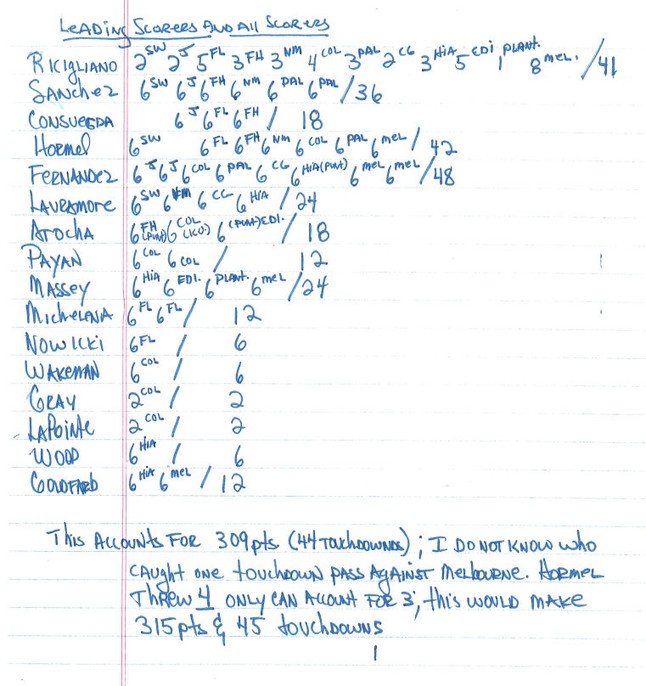 LEADING SCORERS AND All SCORERS
RICIGLIANO 2SW 2J 5FL 3FH 3NM 4COL 3PAL 2CG 3HiA 5EDI 1PLANT. 8MEL. /41
SANCHEZ 6SW 6J 6FH 6NM 6PAL 6PAL /36
CONSUEGDA 6J 6FL 6FH / 18
HORMEL 6SW 6FL 6FH 6NM 6COL 6PAL 6MEL / 42
FERNANDEZ 6J 6J 6COL 6PAL 6CG 6HiA(PUNT) 6MEL 6MEL /48
LAURAMORE 6SW 6NM 6CG 6HiA / 24
AROCHA 6FH(PUNT) 6COL(K.O.) 6(PUNT)EDI. / 18
PAYAN 6COL 6COL / 12
MASSEY 6HiA 6EDI. 6PLANT. 6MEL /24
MICHELENIA 6FL 6FL / 12
NOWICKI 6FL / 6
WAKEMAN 6COL / 6
GRAY 2COL / 2
LAPOINTE 2COL / 2
WOOD 6HiA / 6
GOLDFARB 6HiA 6MEL / 12
This ACCOUNTS FOR 309pts (44 TOUCHDOWNS); I DO NOT KNOW WHO
CAUGHT ONE touchdown PASS AGAINST MELBOURNE. HORMEL
THREW 4 ONLY CAN ACCOUNT FOR 3; this WOULD MAKE
315pts & 45 touchdowns
1